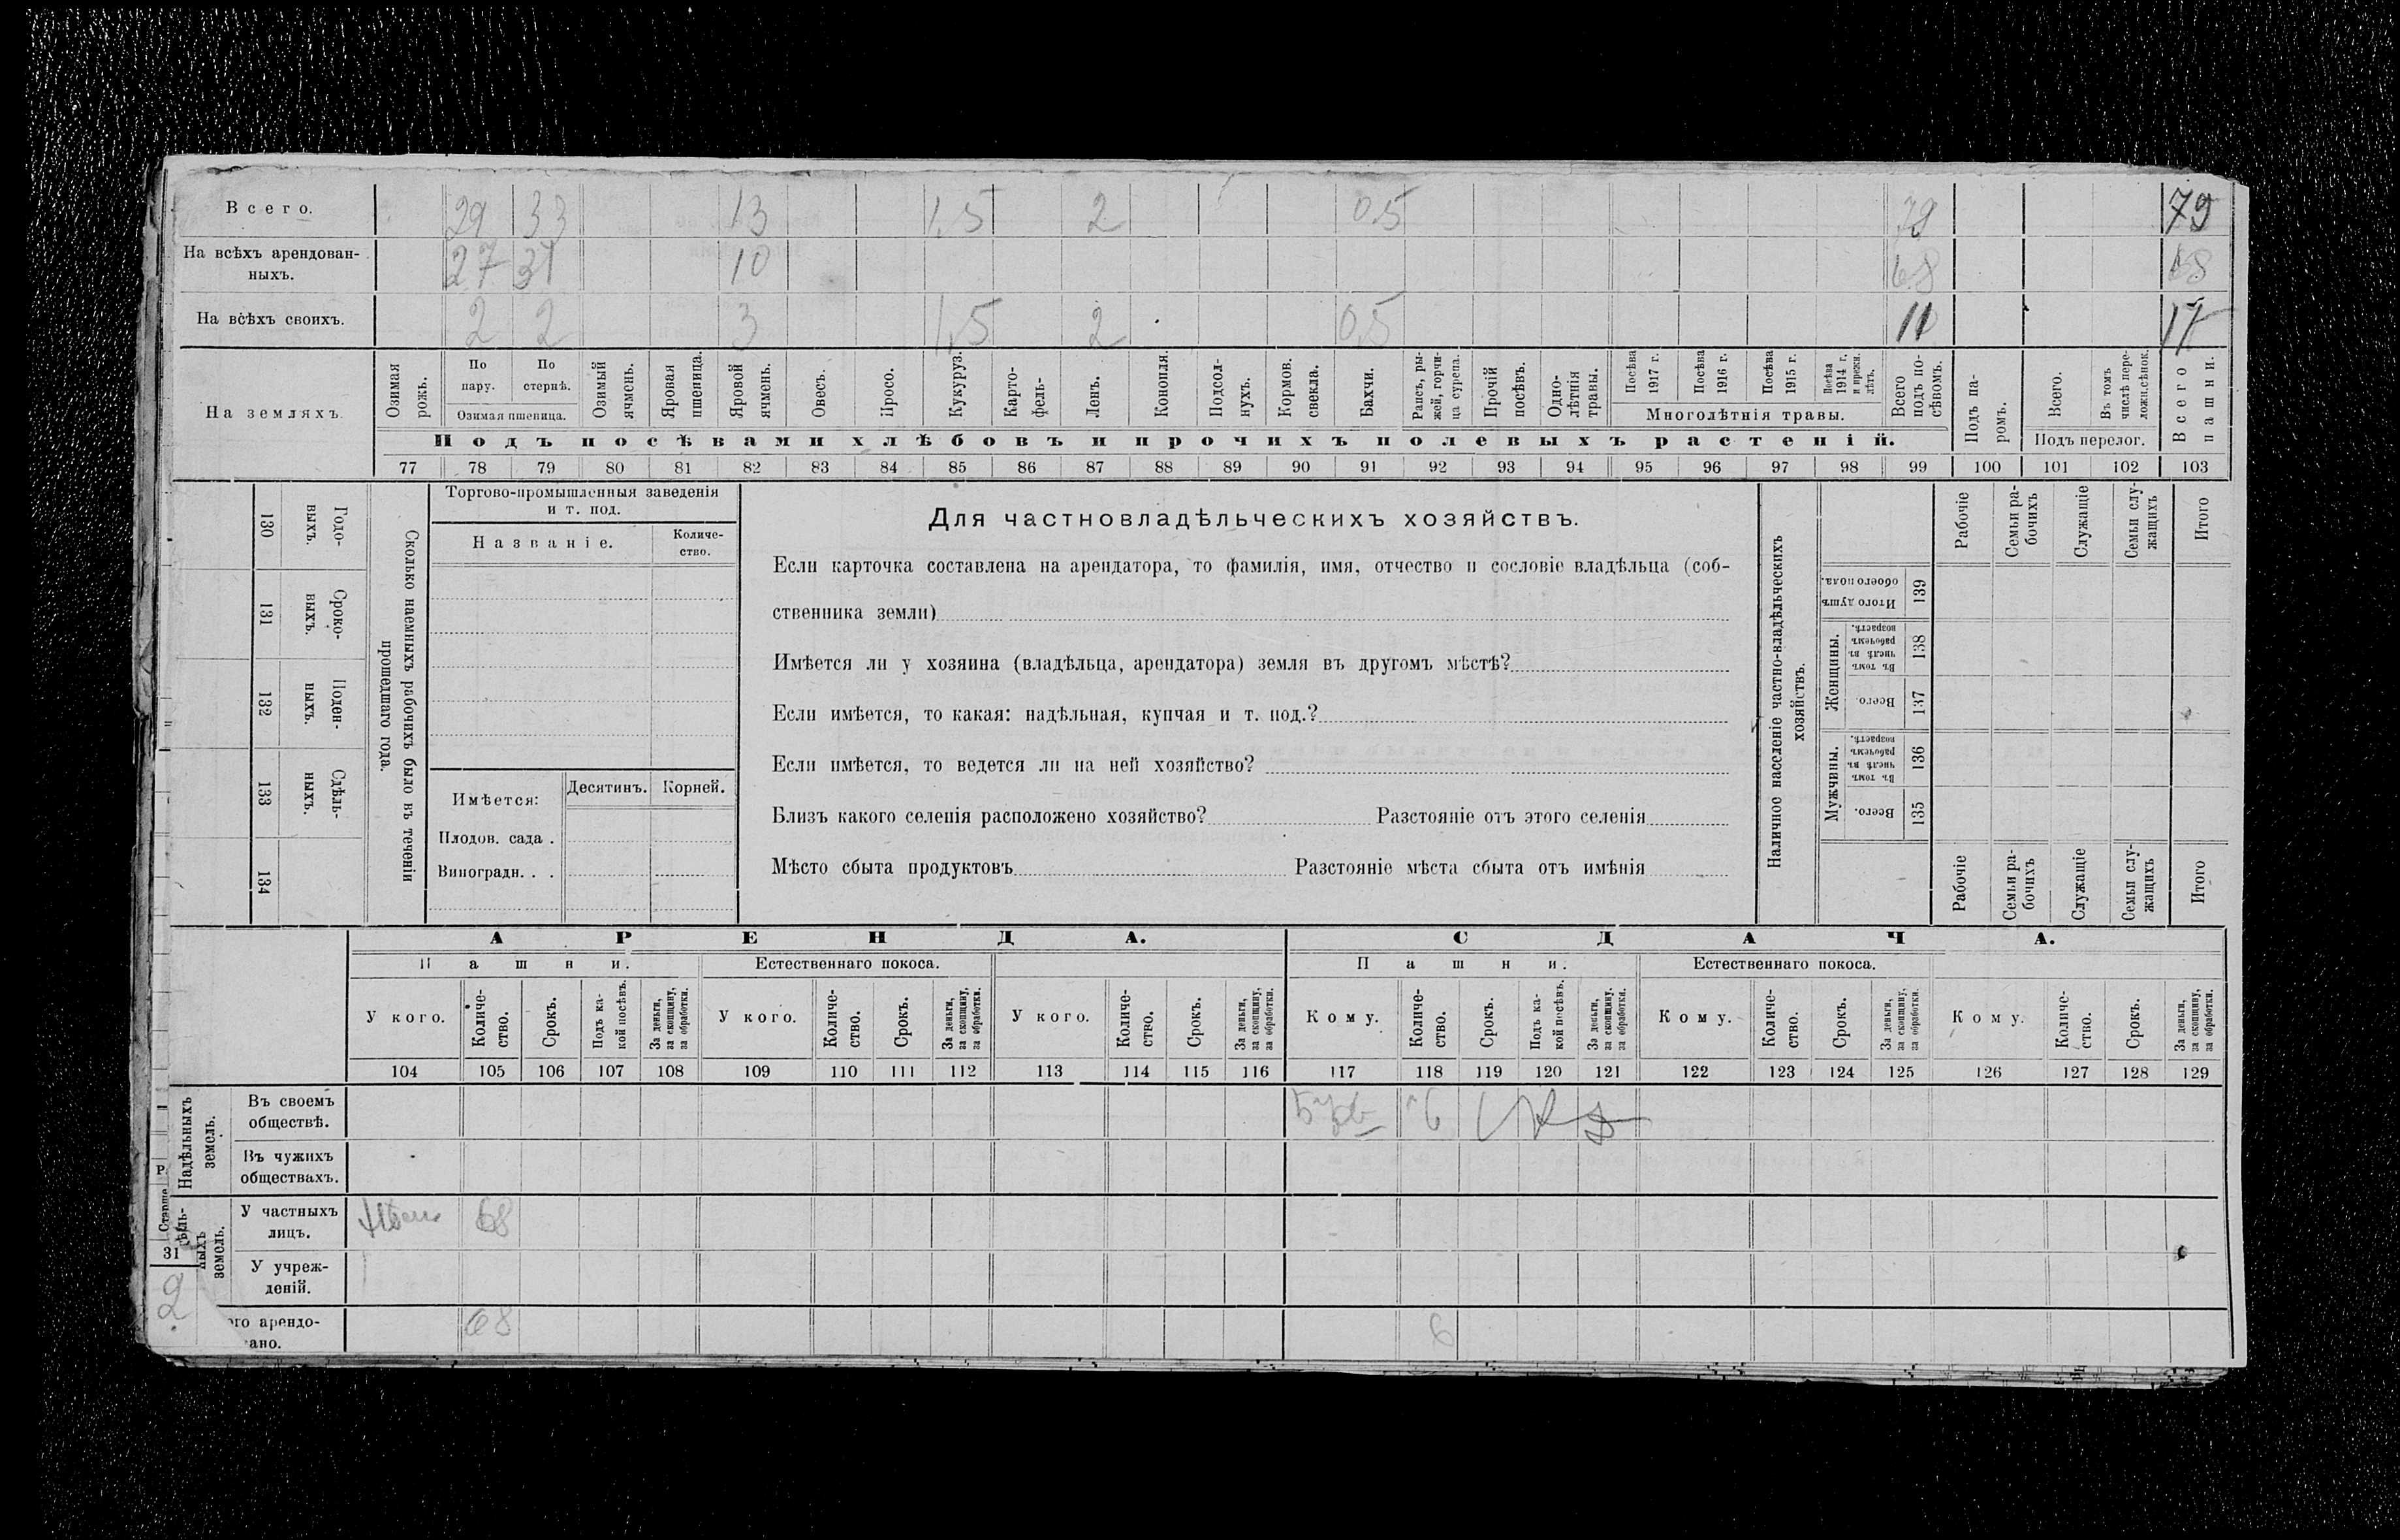 Всего. 29 33 13 1,5 2 0,5 79 79
На всѣхъ арендован-
ныхъ. 27 31 10 68 68
На всѣхъ своихъ. 2 2 3 1,5 2 0,5 11 17
На земляхъ
Озимая рожь.
По пару.
По стернѣ.
Озимая пшеница.
Озимый ячмень.
Яровая пшеница.
Яровой ячмень.
Овесъ.
Просо.
Кукуруз.
Карто-
фель-
Ленъ.
Конопля.
Подсол-
нухъ.
Кормов. свекла.
Бахчи.
Рапсъ, ры-
жей, горчи-
ца сурепа.
Прочій посѣвъ.
Одно-
лѣтнія травы.
Посѣва 1917 г.
Посѣва 1916 г.
Посѣва 1915 г.
Посѣва 1914 г. и прежн. лѣтъ.
Многолѣтнія травы.
Всего подъ по-
сѣвомъ.
Подъ посѣвами хлѣбовъ и прочихъ полевыхъ растеній.
Подъ па-
ромъ.
Всего.
Въ томъ числѣ пере-
ложн.сѣнок.
Подъ перелог.
Всего пашни.
77 78 79 80 81 82 83 84 85 86 87 88 89 90 91 92 93 94 95 96 97 98 99 100 101 102 103
130 Годо-
выхъ.
131 Сроко-
выхъ.
132 Поден-
ныхъ.
133 Сдѣль-
ныхъ.
134
Сколько наемныхъ рабочихъ было въ теченіи
прошедшаго года.
Торгово-промышленныя заведенія
и т. под.
Названіе.
Количе-
ство.
Имѣется: Десятинъ. Корней.
Плодов. сада .
Виноградн. . .
Для частновладѣльческихъ хозяйствъ.
Если карточка составлена на арендатора, то фамилія, имя, отчество и сословіе владѣльца (соб-
ственника земли)
Имѣется ли у хозяина (владѣльца, арендатора) земля въ другомъ мѣстѣ?
Если имѣется, то какая: надѣльная, купчая и т. под.?
Если имѣется, то ведется ли на ней хозяйство?
Близъ какого селенія расположено хозяйство? Разстояніе отъ этого селенія
Мѣсто сбыта продуктовъ Разстояніе мѣста сбыта отъ имѣнія
Наличное населеніе частно-владѣльческихъ
хозяйствъ.
Рабочіе
Семьи ра-
бочихъ
Служащіе
Семьи слу-
жащихъ
Итого
Итого душъ обоего пола. 139
Женщины.
Въ томъ числѣ въ рабочемъ возрастѣ. 138
Всего. 137
Мужчины.
Въ томъ числѣ въ рабочемъ возрастѣ. 136
Всего. 135
Рабочіе
Семьи ра-
бочихъ
Служащіе
Семьи слу-
жащихъ
Итого
АРЕНДА. СДАЧА.
Пашни. Естественнаго покоса. Пашни. Естественнаго покоса.
У кого.
Количе-
ство.
Срокъ.
Подъ ка-
кой посѣвъ.
За деньги, за скопщину, за обработки.
У кого.
Количе-
ство.
Срокъ.
За деньги, за скопщину, за обработки.
У кого.
Количе-
ство.
Срокъ.
За деньги, за скопщину, за обработки.
Кому.
Количе-
ство.
Срокъ.
Подъ ка-
кой посѣвъ.
За деньги, за скопщину, за обработки.
Кому.
Количе-
ство.
Срокъ.
За деньги, за скопщину, за обработки.
Кому.
Количе-
ство.
Срокъ.
За деньги, за скопщину, за обработки.
104 105 106 107 108 109 110 111 112 113 114 115 116 117 118 119 120 121 122 123 124 125 126 127 128 129
Надѣльныхъ
земель.
Въ своемъ
обществѣ. 6
Въ чужихъ
обществахъ.
ныхъ
земель.
У частныхъ
лицъ. 68
У учреж-
деній.
го арендо-
ано. 68 6
31
2